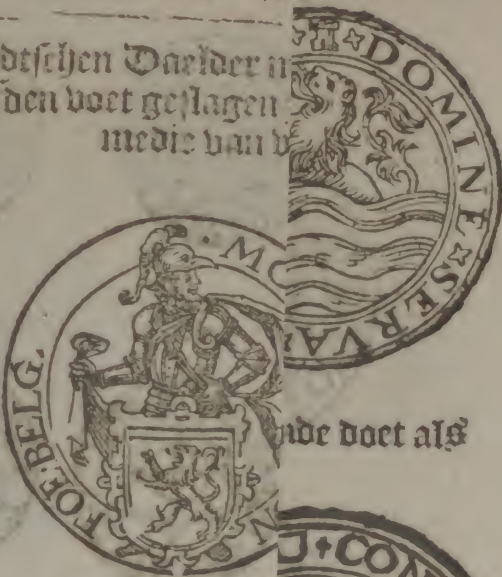 dtschen Daelder n
den voet geslagen
medie van v
DOMINE SERVA
M
FOE BELG.
nde voet als
CON